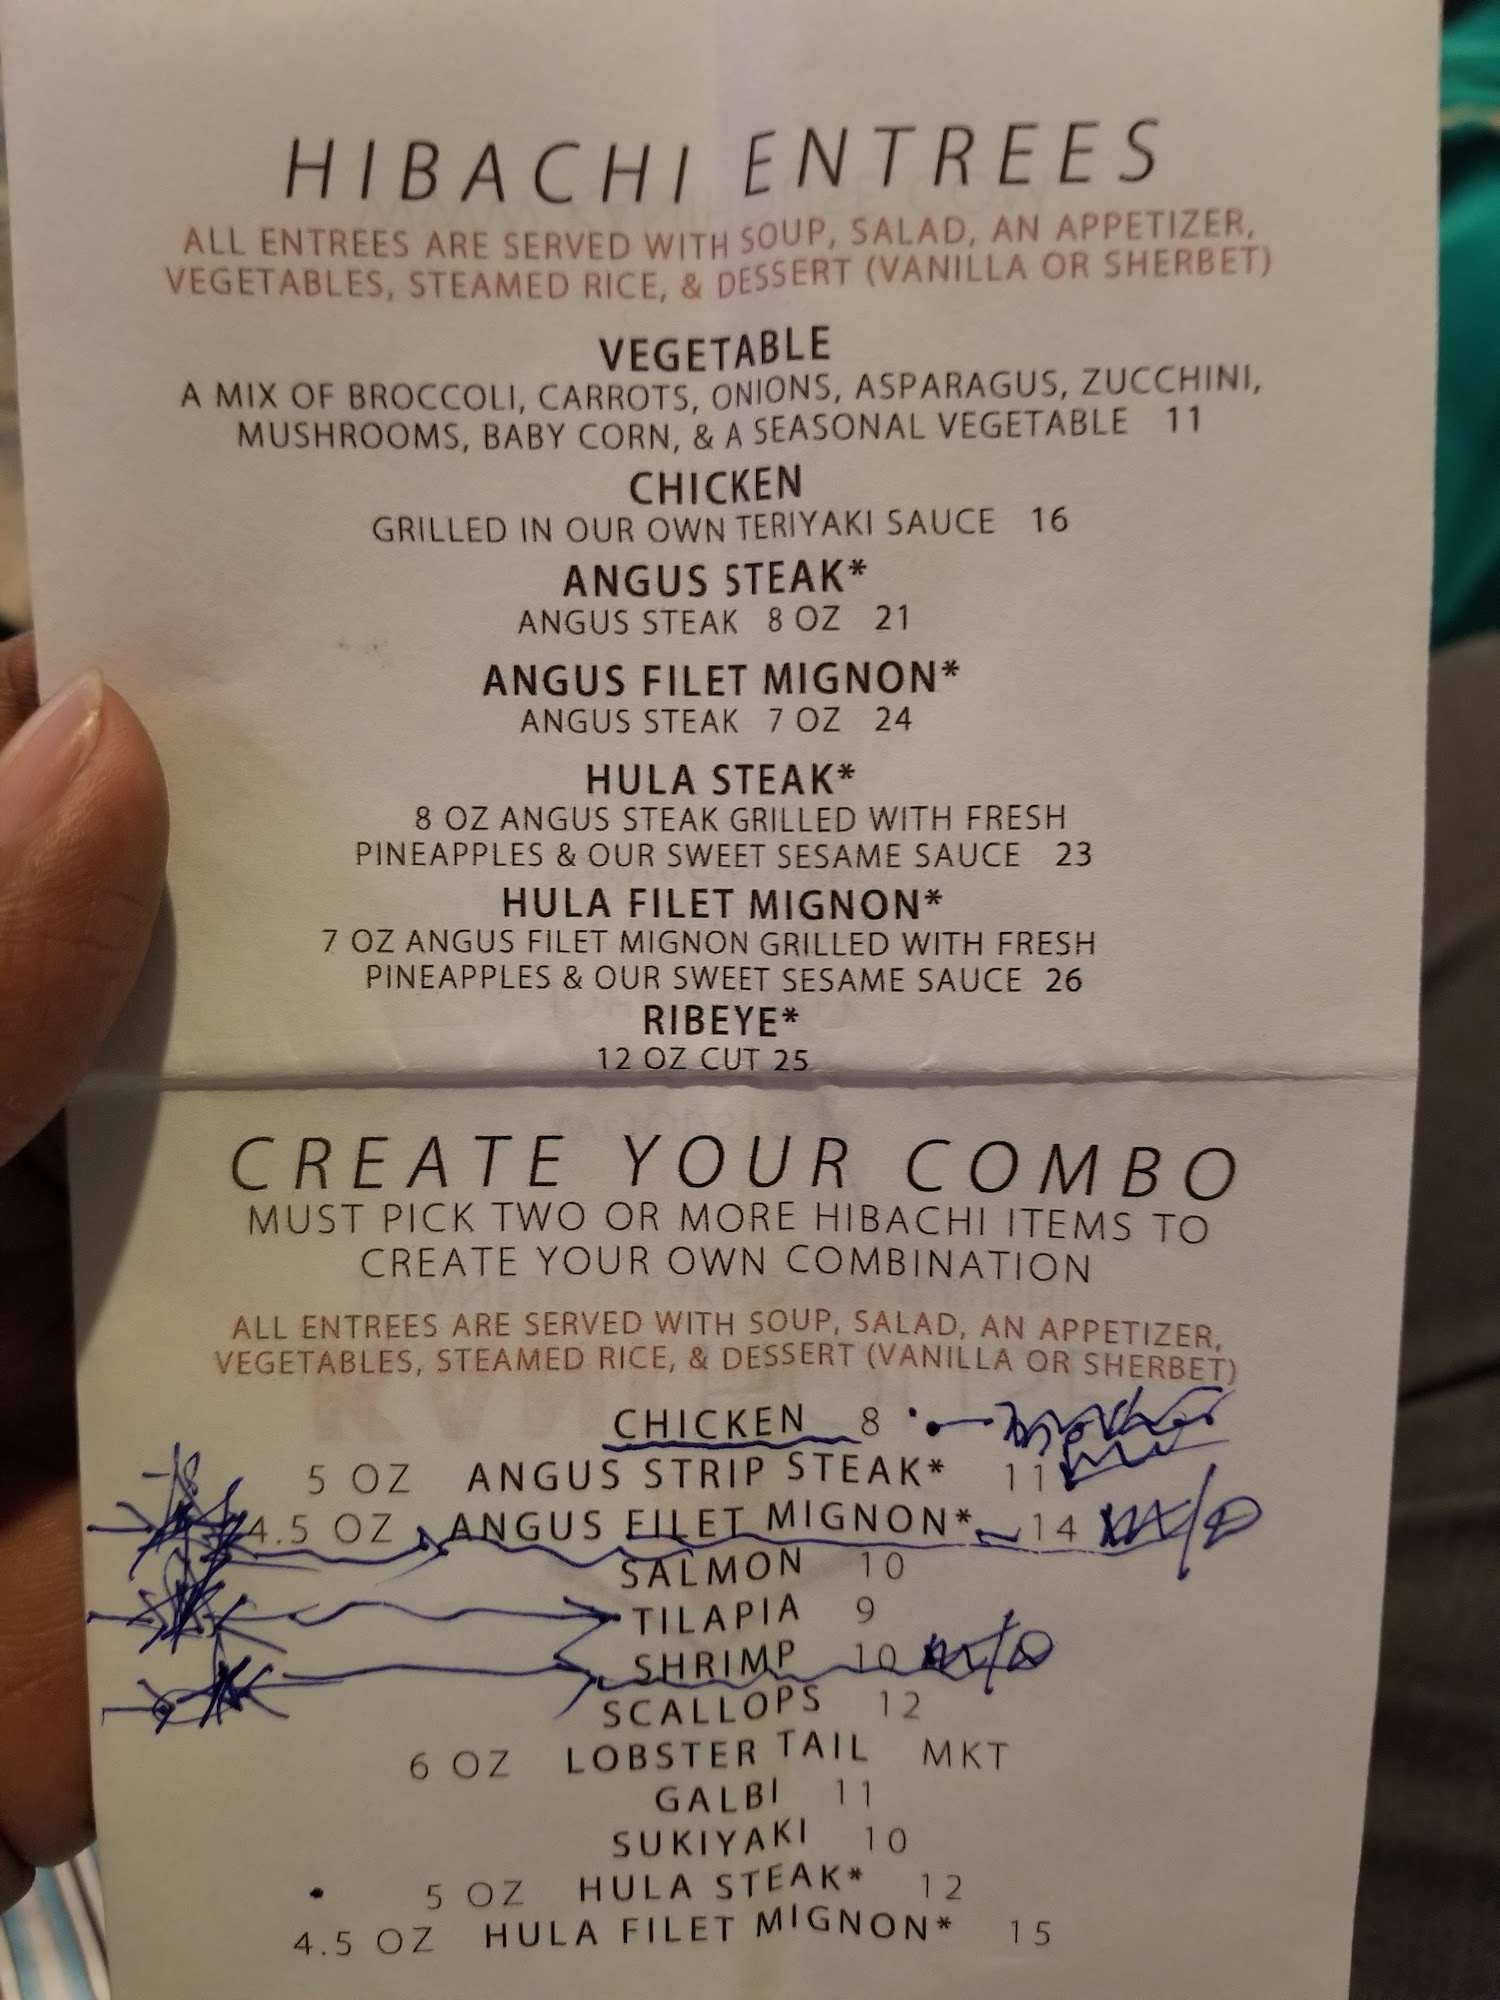 HIBACHI ENTREES
ALL ENTREES ARE SERVED WITH SOUP, SALAD, AN APPETIZER,
VEGETABLES, STEAMED RICE, & DESSERT (VANILLA OR SHERBET)
VEGETABLE
A MIX OF BROCCOLI, CARROTS, ONIONS, ASPARAGUS, ZUCCHINI,
MUSHROOMS, BABY CORN, & A SEASONAL VEGETABLE 11
CHICKEN
GRILLED IN OUR OWN TERIYAKI SAUCE 16
ANGUS STEAK*
ANGUS STEAK 8 OZ 21
ANGUS FILET MIGNON*
ANGUS STEAK 7 OZ 24
HULA STEAK*
8 OZ ANGUS STEAK GRILLED WITH FRESH
PINEAPPLES & OUR SWEET SESAME SAUCE 23
HULA FILET MIGNON*
7 OZ ANGUS FILET MIGNON GRILLED WITH FRESH
PINEAPPLES & OUR SWEET SESAME SAUCE 26
RIBEYE*
12 OZ CUT 25
CREATE YOUR COMBO
MUST PICK TWO OR MORE HIBACHI ITEMS TO
CREATE YOUR OWN COMBINATION
ALL ENTREES ARE SERVED WITH SOUP, SALAD, AN APPETIZER,
VEGETABLES, STEAMED RICE, & DESSERT (VANILLA OR SHERBET)
CHICKEN 8
5 OZ ANGUS STRIP STEAK* 11
4.5 OZ ANGUS FILET MIGNON* 14
SALMON 10
TILAPIA 9
SHRIMP 10
SCALLOPS 12
6 OZ LOBSTER TAIL MKT
GALBI 11
SUKIYAKI 10
5 OZ HULA STEAK* 12
4.5 OZ HULA FILET MIGNON* 15